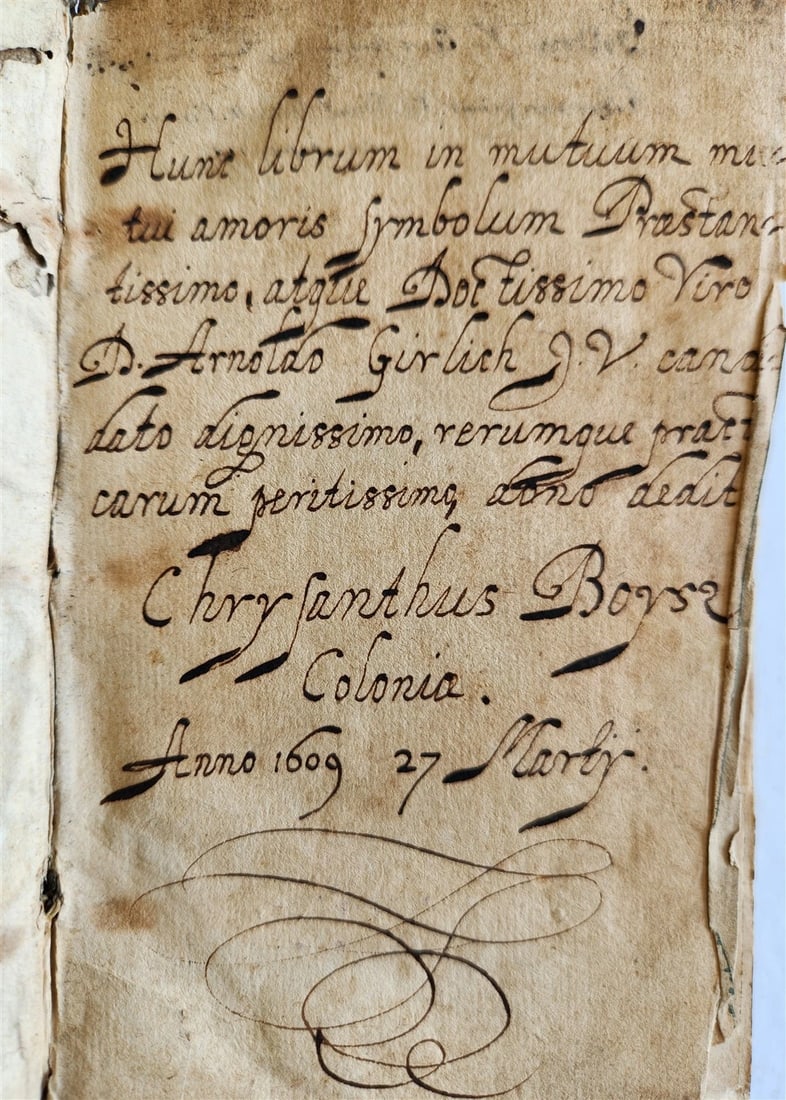 Hunc librum in mutuum mu-
tui amoris symbolum Præstan-
tissimo, atque Doctissimo Viro
D. Arnoldo Girlich J. V. candi-
dato dignissimo, rerumque practi-
carum peritissimo, dono dedit
Chrysanthus Boysz
Coloniæ.
Anno 1609 27 Martij.